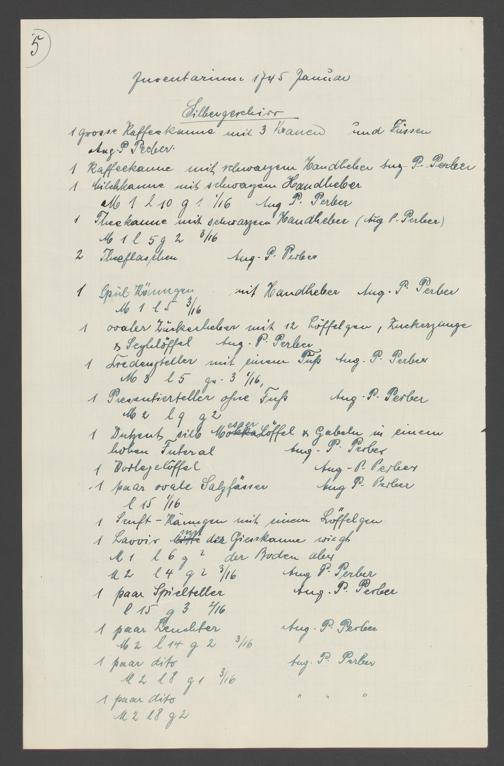 5
Inventarium 1745 Januar
Silbergeschirr
1 grosse Kaffeekanne mit 3 Kranen und Füssen
Aug. P. Perber.
1 Kaffeekanne mit schwarzem Handheber Aug. P. Perber
1 Milchkanne mit schwarzem Handheber
M 1 l 10 g 1 1/16 Aug P. Perber
1 Theekanne mit schwarzem Handheber (Aug P. Perber)
M 1 l 5 g 2 3/16
2 Theeflaschen Aug. P. Perber
1 Spül Känngen mit Handheber Aug. P. Perber
M 1 l 5 3/16
1 ovaler Zuckerheber mit 12 Löffelgen, Zuckerzange
& Seyhlöffel Aug. P. Perber
1 Credenzteller mit einem Fuss Aug. P. Perber
M 3 l 5 g. 3 1/16,
1 Presentierteller ohne Fuss Aug. P. Perber
M 2 l 9 g 2
1 Dutzent silb Löffel & Gabeln in einem
hohen Futeral Aug. P. Perber
1 Vorlegelöffel Aug. P. Perber
1 paar ovale Salzfässer Aug P. Perber
l 15 1/16
1 Senft-Känngen mit einem Löffelgen
1 Lavoir mit der Gieskanne wiegt
M 1 l 6 g 2 der Boden aber
M 2 l 4 g 2 3/16 Aug P. Perber
1 paar Spielteller Aug. P. Perber
l 15 g 3 2/16
1 paar Leuchter Aug. P. Perber
M 2 l 14 g 2 3/16
1 paar dito Aug. P. Perber
M 2 l 8 g 1 3/16
1 paar dito " " "
M 2 l 8 g 2